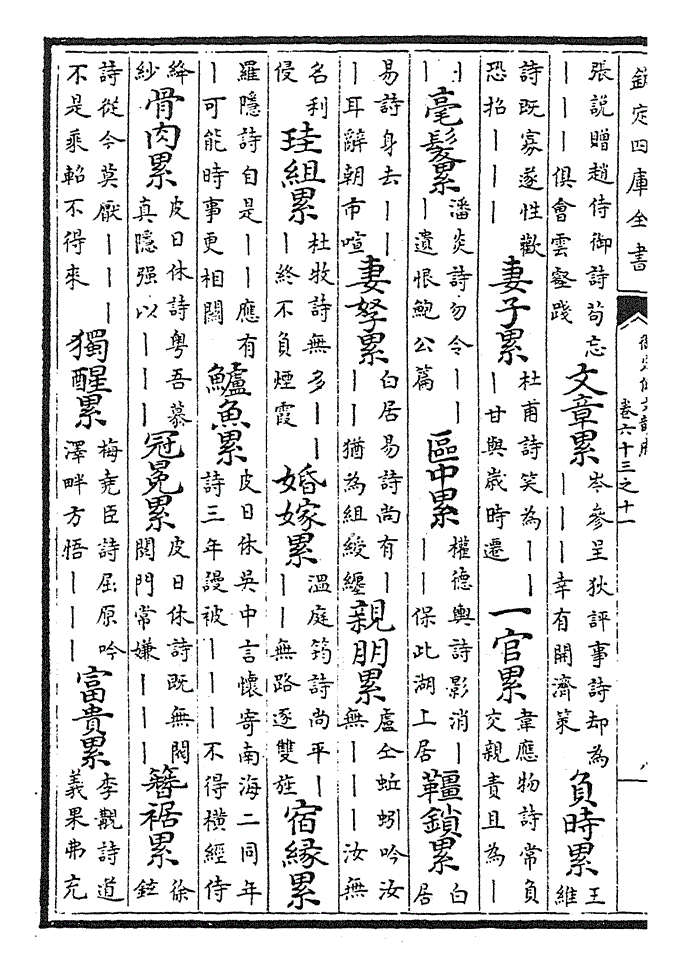 欽定四庫全書 御定佩文韻府 卷六十三之十一 八
張說贈趙侍御詩苟忘｜｜｜俱會雲壑踐 文章累 岑參呈狄評事詩却為｜｜｜幸有開濟策 負時累 王維
詩既寡遂性歡恐招｜｜｜ 妻子累 杜甫詩笑為｜｜｜甘與歲時遷 一官累 韋應物詩常負交親責且為｜
｜｜ 毫髮累 潘炎詩勿令｜｜｜遺恨鮑公篇 區中累 權德輿詩影消｜｜｜保此湖上居 韁鎖累 白居
易詩身去｜｜｜耳辭朝市喧 妻孥累 白居易詩尚有｜｜｜猶為組綬纏 親朋累 盧仝蚯蚓吟汝無｜｜｜汝無
名利侵 珪組累 杜牧詩無多｜｜｜終不負煙霞 婚嫁累 溫庭筠詩尚平｜｜｜無路逐雙旌 宿緣累
羅隱詩自是｜｜應有｜可能時事更相關 鱸魚累 皮日休吳中言懷寄南海二同年詩三年謾被｜｜｜不得橫經侍
絳紗 骨肉累 皮日休詩粵吾慕真隱强以｜｜｜ 冠冕累 皮日休詩既無閥閱門常嫌｜｜｜ 簪裾累 徐鉉
詩從今莫厭｜｜｜不是乘軺不得來 獨醒累 梅堯臣詩屈原吟澤畔方悟｜｜｜ 富貴累 李覯詩道義果弗充